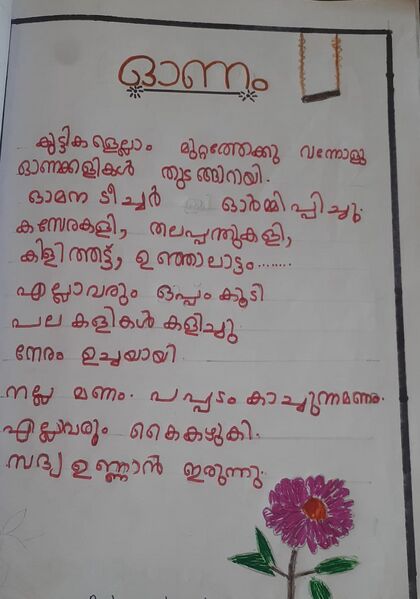 ഓണം
കുട്ടികളെല്ലാം മുറ്റത്തേക്കു വന്നോളു
ഓണക്കളികൾ തുടങ്ങിറായി.
ഓമന ടീച്ചർ ഓർമ്മിപ്പിച്ചു.
കസേരകളി, തലപ്പന്തുകളി,
കിളിത്തട്ട്, ഉഞ്ഞാലാട്ടം.......
എല്ലാവരും ഒപ്പം കൂടി
പല കളികൾ കളിച്ചു.
നേരം ഉച്ചയായി.
നല്ല മണം. പപ്പടം കാച്ചുന്നമണം.
എല്ലാവരും കൈകഴുകി.
സദ്യ ഉണ്ണാൻ ഇരുന്നു.